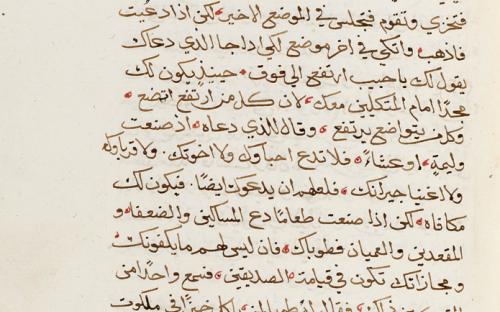 فتخزي وتقوم فتجلس في الموضع الاخير لكن اذا دعيت
فاذهب واتكي في اخر موضع لكي اذا جا الذي دعاك
يقول لك يا حبيب ارتفع الي فوق حينيذ يكون لك
مجدًا امام المتكلين معك لان كل من ارتفع اتضع
وكلمن يتواضع يرتفع وقال للذي دعاه اذ صنعت
وليمةٍ او عشاءً فلا تدع احباوك ولا اخوتك ولا قرباوك
ولا اغنيا جيرانك فلعلهم ان يدعوك ايضًا فيكون لك
مكافاه لكن اذا صنعت طعامًا دع المساكين والضعفا و
المقعدين والعميان فطوباك فان ليس لهم ما يكفونك
ومجازاتك تكون في قيامة الصديقين فسمع واحدًا من
خبزًا في ملكوت